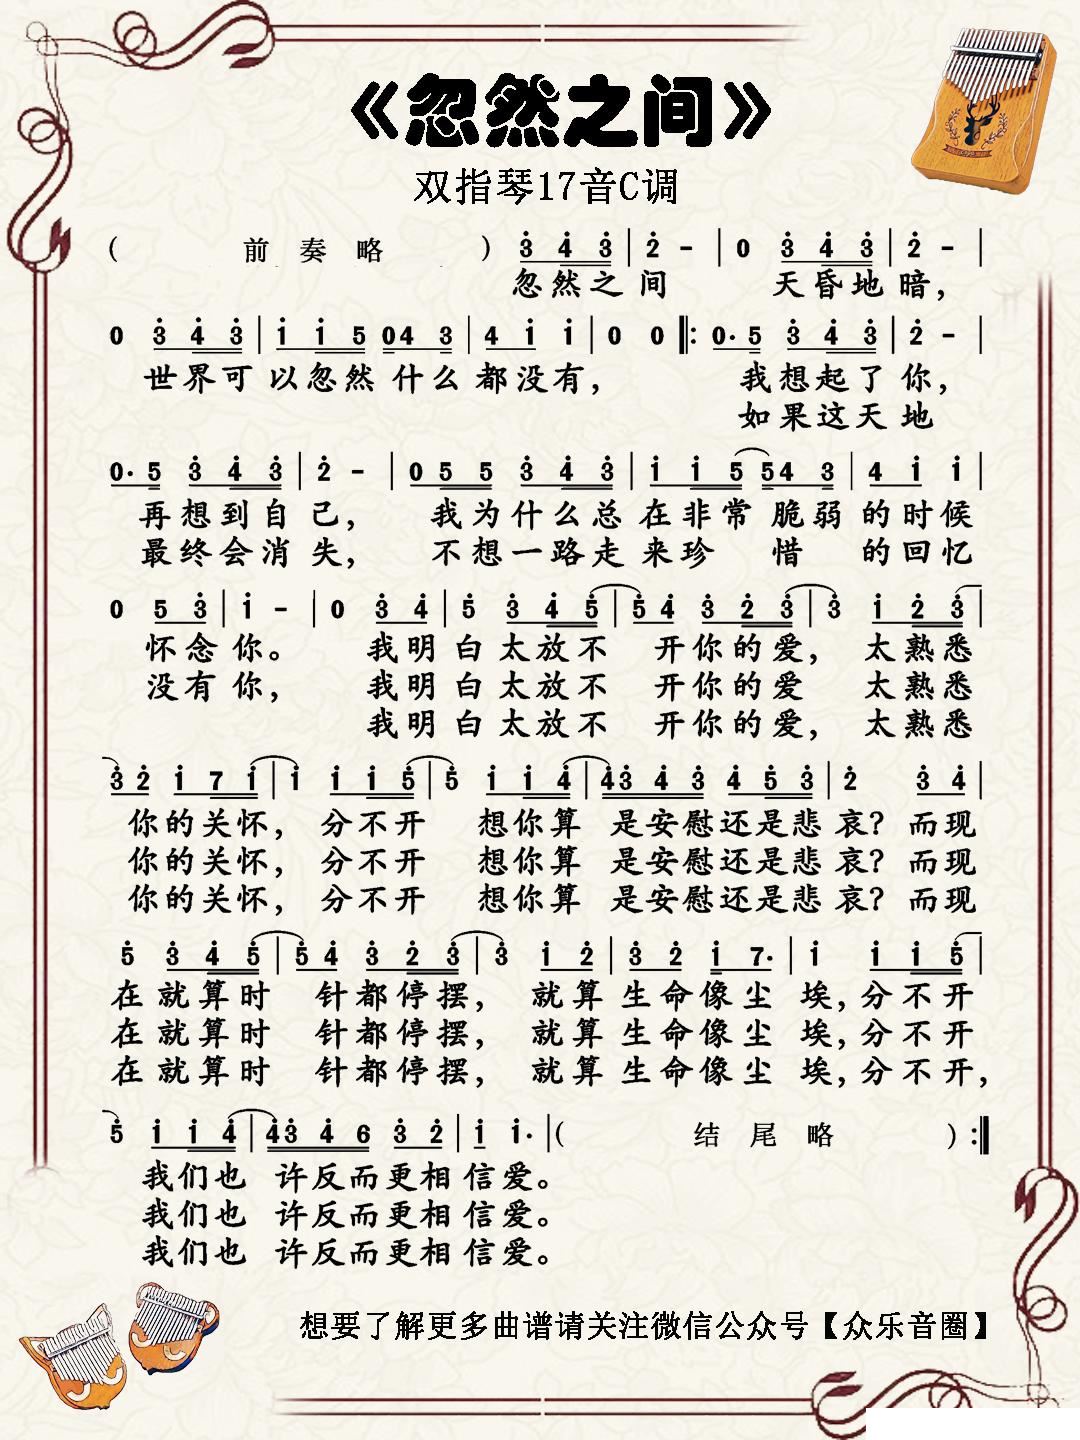 《忽然之间》
双指琴17音C调
( 前奏略 ) 3 4 3 | 2 - | 0 3 4 3 | 2 - |
忽然之间 天昏地暗，
0 3 4 3 | 1 1 5 04 3 | 4 1 1 | 0 0 ‖: 0·5 3 4 3 | 2 - |
世界可以忽然什么都没有， 我想起了你，
如果这天地
0·5 3 4 3 | 2 - | 0 5 5 3 4 3 | 1 1 5 54 3 | 4 1 1 |
再想到自己， 我为什么总在非常脆弱的时候
最终会消失， 不想一路走来珍惜的回忆
0 5 3 | 1 - | 0 3 4 | 5 3 4 5 | 5 4 3 2 3 | 3 1 2 3 |
怀念你。 我明白太放不开你的爱， 太熟悉
没有你， 我明白太放不开你的爱 太熟悉
我明白太放不开你的爱， 太熟悉
3 2 1 7 1 | 1 1 1 5 | 5 1 1 4 | 43 4 3 4 5 3 | 2 3 4 |
你的关怀， 分不开 想你算 是安慰还是悲哀？ 而现
你的关怀， 分不开 想你算 是安慰还是悲哀？ 而现
你的关怀， 分不开 想你算 是安慰还是悲哀？ 而现
5 3 4 5 | 5 4 3 2 3 | 3 1 2 | 3 2 1 7· | 1 1 1 5 |
在就算时 针都停摆， 就算生命像尘埃，分不开
在就算时 针都停摆， 就算生命像尘埃，分不开
在就算时 针都停摆， 就算生命像尘埃，分不开，
5 1 1 4 | 43 4 6 3 2 | 1 1· | ( 结尾略 ) :‖
我们也 许反而更相信爱。
我们也 许反而更相信爱。
我们也 许反而更相信爱。
想要了解更多曲谱请关注微信公众号【众乐音圈】